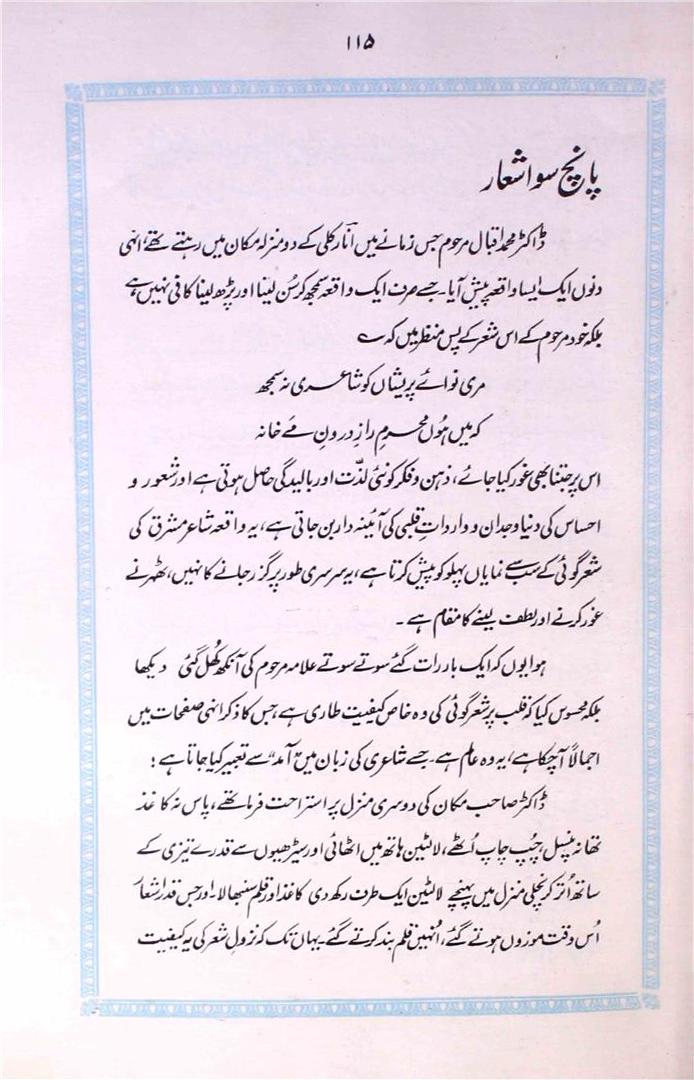 ۱۱۵
پانچ سو اشعار
ڈاکٹر محمد اقبال مرحوم جس زمانے میں انارکلی کے دو منزلہ مکان میں رہتے تھے انہی
دنوں ایک ایسا واقعہ پیش آیا۔ جسے صرف ایک واقعہ سمجھ کر سُن لینا اور پڑھ لینا کافی نہیں ہے
بلکہ خود مرحوم کے اس شعر کے پس منظر میں کہ ؎
مری نوائے پریشاں کو شاعری نہ سمجھ
کہ میں ہُوں محرمِ رازِ درونِ مے خانہ
اس پر جتنا بھی غور کیا جائے، ذہن و فکر کو نئی لذّت اور بالیدگی حاصل ہوتی ہے اور شعور و
احساس کی دنیا وجدان و وارداتِ قلبی کی آئینہ دار بن جاتی ہے، یہ واقعہ شاعر مشرق کی
شعر گوئی کے سب سے نمایاں پہلو کو پیش کرتا ہے، یہ سرسری طور پر گزر جانے کا نہیں، ٹھہرنے
غور کرنے اور لطف لینے کا مقام ہے ۔
ہوا یوں کہ ایک بار رات گئے سوتے سوتے علامہ مرحوم کی آنکھ کُھل گئی دیکھا
بلکہ محسوس کیا کہ قلب پر شعر گوئی کی وہ خاص کیفیت طاری ہے، جس کا ذکر انہی صفحات میں
اجمالاً آ چکا ہے، یہ وہ عالم ہے۔ جسے شاعری کی زبان میں "آمد" سے تعبیر کیا جاتا ہے ؛
ڈاکٹر صاحب مکان کی دوسری منزل پر استراحت فرما تھے، پاس نہ کاغذ
تھا نہ پنسل، چُپ چاپ اُٹھے، لالٹین ہاتھ میں اٹھائی اور سیڑھیوں سے قدرے تیزی کے
ساتھ اُتر کر نچلی منزل میں پہنچے لالٹین ایک طرف رکھ دی کاغذ اور قلم سنبھالا، اور جس قدر اشعار
اُس وقت موزوں ہوتے گئے، اُنہیں قلم بند کرتے گئے۔ یہاں تک کہ نزولِ شعر کی یہ کیفیت